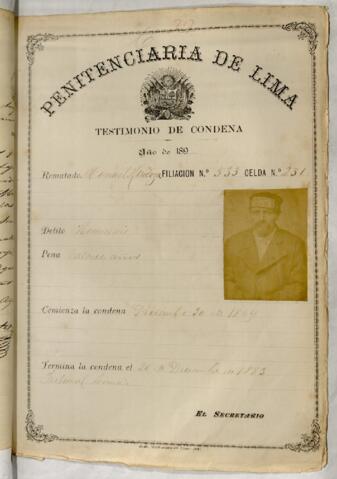 PENITENCIARIA DE LIMA
TESTIMONIO DE CONDENA
Año de 189
Rematado Manuel FILIACION N.º 333 CELDA N.º 231
Delito Homicidio
Pena catorce años
Comienza la condena Diciembre 20 de 1869
Termina la condena el 20 de Diciembre de 1883
EL SECRETARIO